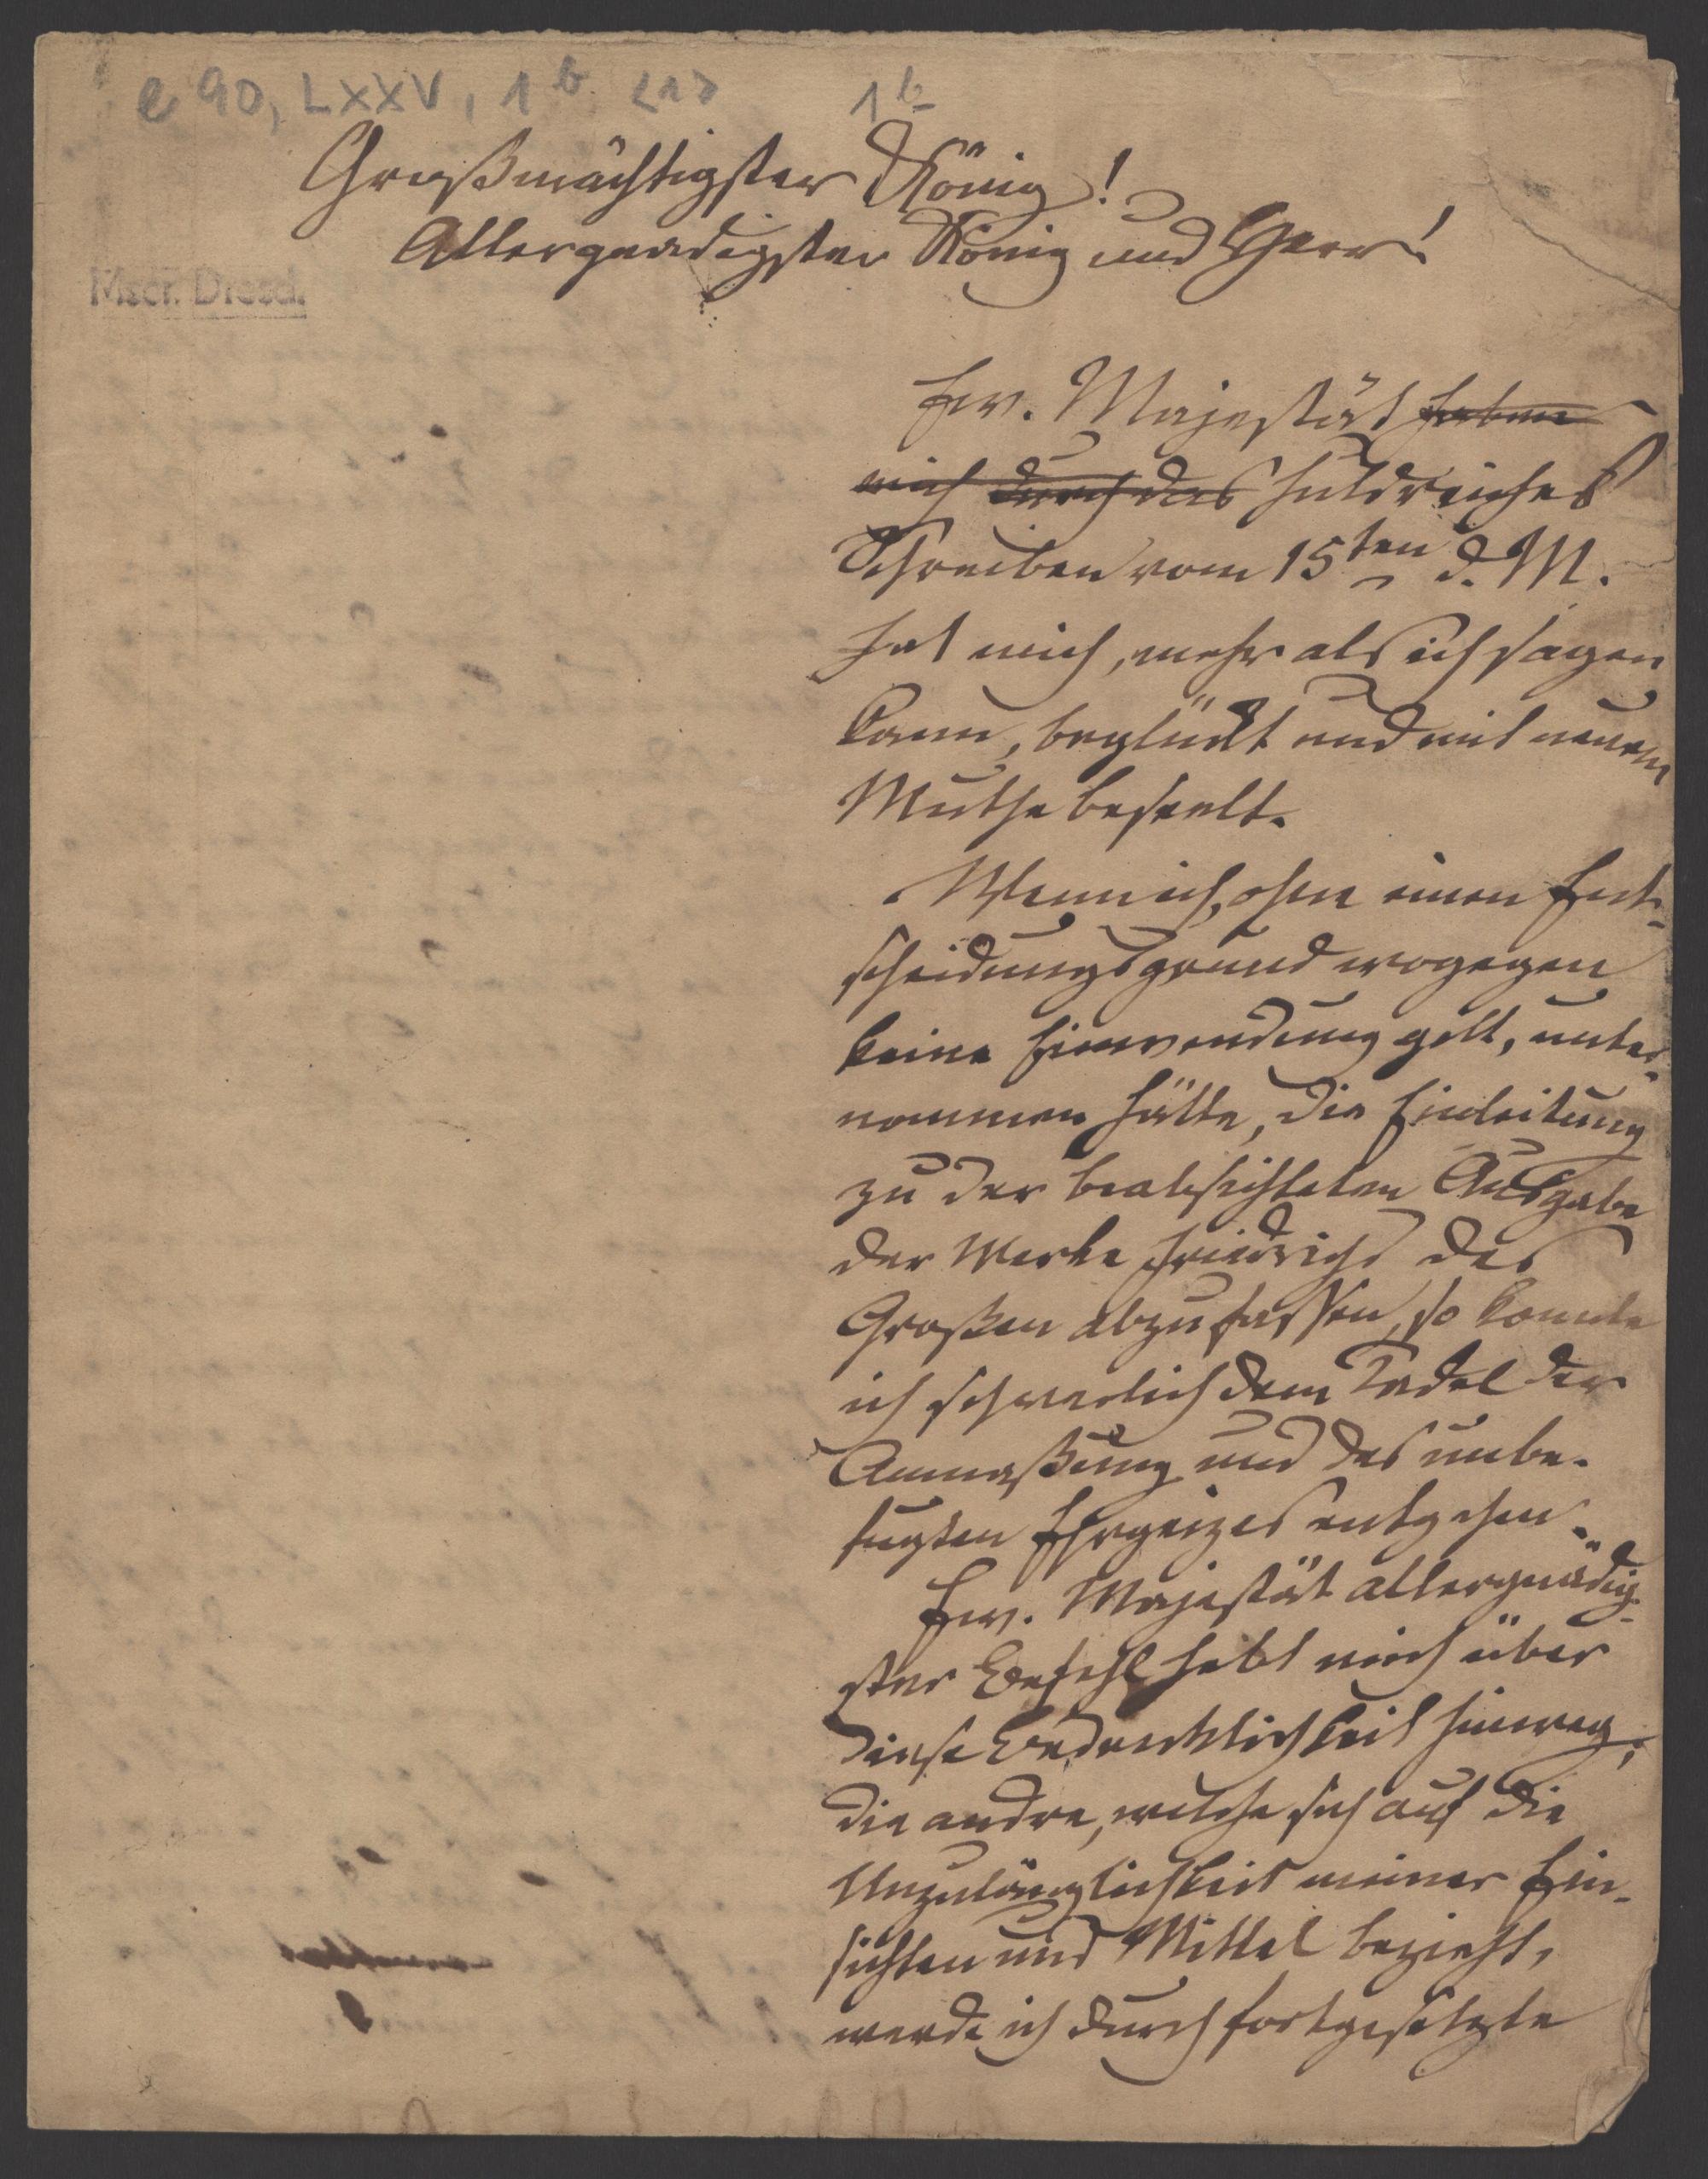 e 90, LXXV, 1b <1> 1b
Großmächtigster König!
Allergnädigster König und Herr!
Mscr. Dresd.
Ew. Majestät haben
mich durch das huldreiches
Schreiben vom 15ten d. M.
hat mich, mehr als ich sagen
kann, beglückt und mit neuem
Muthe beseelt.
Wenn ich, ohne einen Ent-
scheidungsgrund wogegen
keine Einwendung gilt, unter-
nommen hätte, die Einleitung
zu der beabsichteten Ausgabe
der Werke Friedrichs des
Großen abzufassen, so konnte
ich schwerlich dem Tadel der
Anmaßung und des unbe-
fugten Ehrgeizes entgehen.
Ew. Majestät allergnädig-
ster Befehl hebt mich über
diese Bedenklichkeit hinweg;
die andre, welche sich auf die
Unzulänglichkeit meiner Ein-
sichten und Mittel bezieht,
werde ich durch fortgesetzte